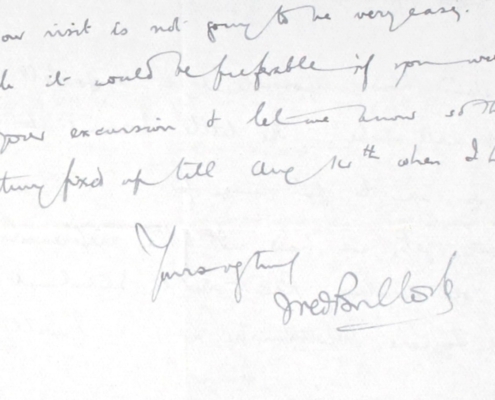 our visit is not going to be very easy.
it would be preferable if you
your excursion & let me know so
fixed up till Aug 16th when I
Yours very truly
Fred Bullock